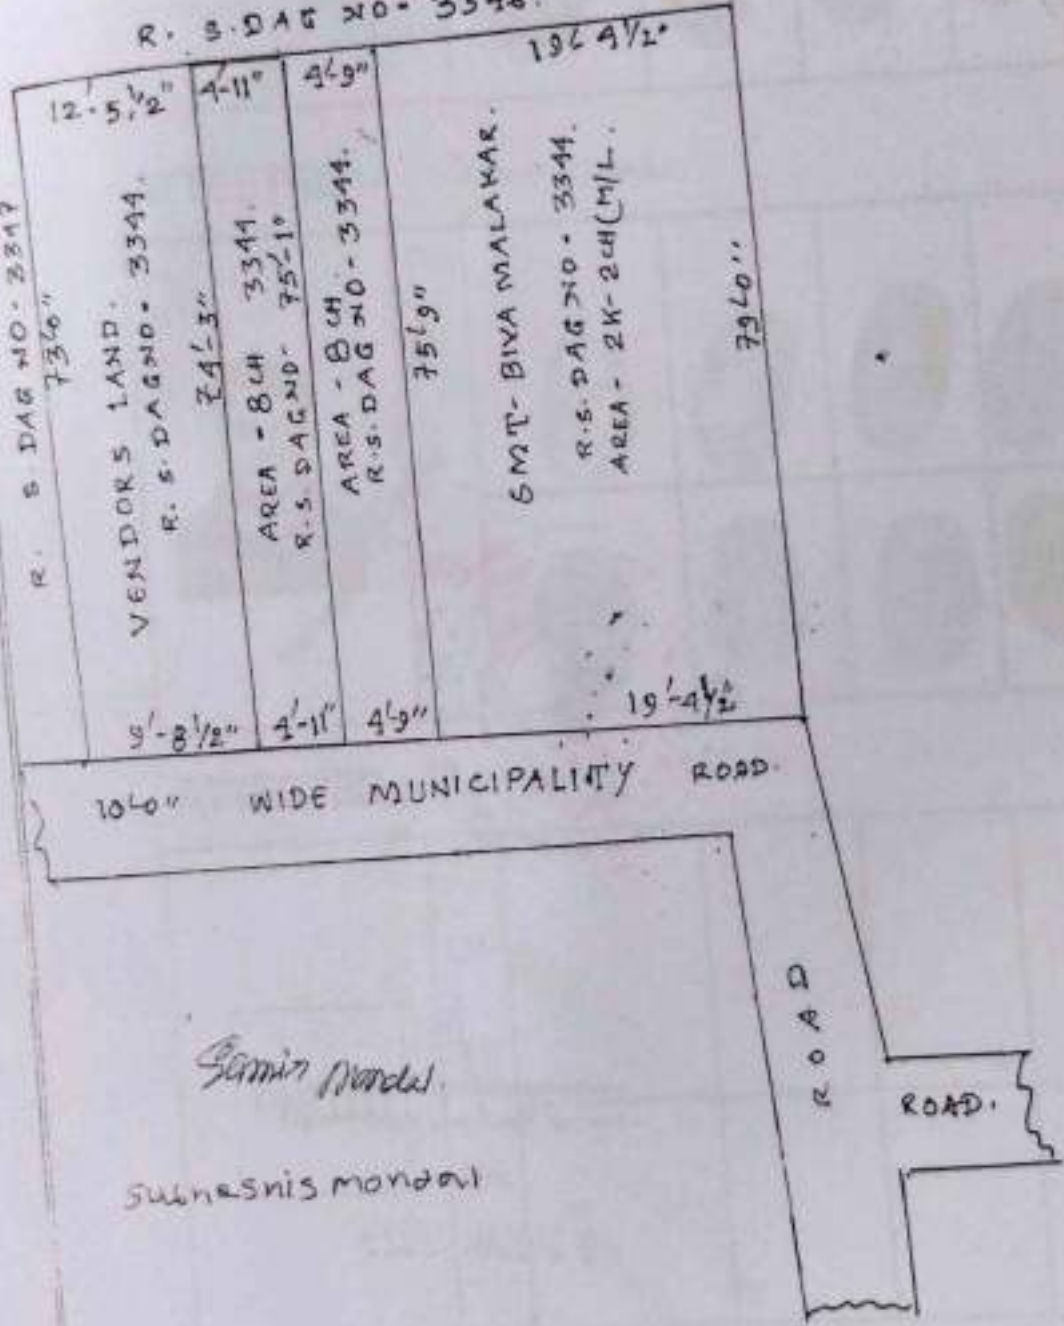 R. S. DAG NO- 3346.
12'-5 1/2"
4'-11"
4'-9"
19'-4 1/2"
R. S. DAG NO- 3347
73'-0"
VENDORS LAND.
R. S. DAG NO- 3344.
74'-3"
AREA - 8 CH
R.S. DAG NO- 3344.
75'-1"
AREA - 8 CH.
R.S. DAG NO- 3344.
75'-9"
SMT- BIVA MALAKAR.
R.S. DAG NO- 3344.
AREA - 2K- 2CH (M/L.
79'-0"
9'-8 1/2"
4'-11"
4'-9"
19'-4 1/2"
10'-0" WIDE MUNICIPALITY ROAD.
ROAD
ROAD.
Mondal.
Mondal